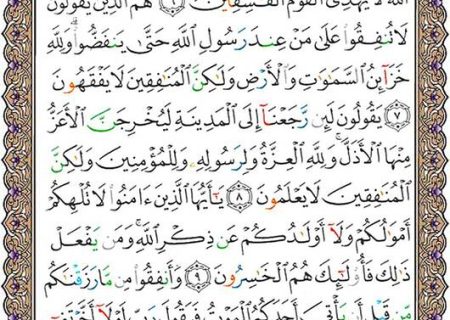 ٱللَّهَ لَا يَهْدِى ٱلْقَوْمَ ٱلْفَٰسِقِينَ ٦ هُمُ ٱلَّذِينَ يَقُولُونَ
لَا تُنفِقُوا۟ عَلَىٰ مَنْ عِندَ رَسُولِ ٱللَّهِ حَتَّىٰ يَنفَضُّوا۟ ۗ وَلِلَّهِ
خَزَآئِنُ ٱلسَّمَٰوَٰتِ وَٱلْأَرْضِ وَلَٰكِنَّ ٱلْمُنَٰفِقِينَ لَا يَفْقَهُونَ
٧ يَقُولُونَ لَئِن رَّجَعْنَآ إِلَى ٱلْمَدِينَةِ لَيُخْرِجَنَّ ٱلْأَعَزُّ
مِنْهَا ٱلْأَذَلَّ ۚ وَلِلَّهِ ٱلْعِزَّةُ وَلِرَسُولِهِۦ وَلِلْمُؤْمِنِينَ وَلَٰكِنَّ
ٱلْمُنَٰفِقِينَ لَا يَعْلَمُونَ ٨ يَٰٓأَيُّهَا ٱلَّذِينَ ءَامَنُوا۟ لَا تُلْهِكُمْ
أَمْوَٰلُكُمْ وَلَآ أَوْلَٰدُكُمْ عَن ذِكْرِ ٱللَّهِ ۚ وَمَن يَفْعَلْ
ذَٰلِكَ فَأُو۟لَٰٓئِكَ هُمُ ٱلْخَٰسِرُونَ ٩ وَأَنفِقُوا۟ مِن مَّا رَزَقْنَٰكُم
مِّن قَبْلِ أَن يَأْتِىَ أَحَدَكُمُ ٱلْمَوْتُ فَيَقُولَ رَبِّ لَوْلَآ أَخَّرْتَنِىٓ